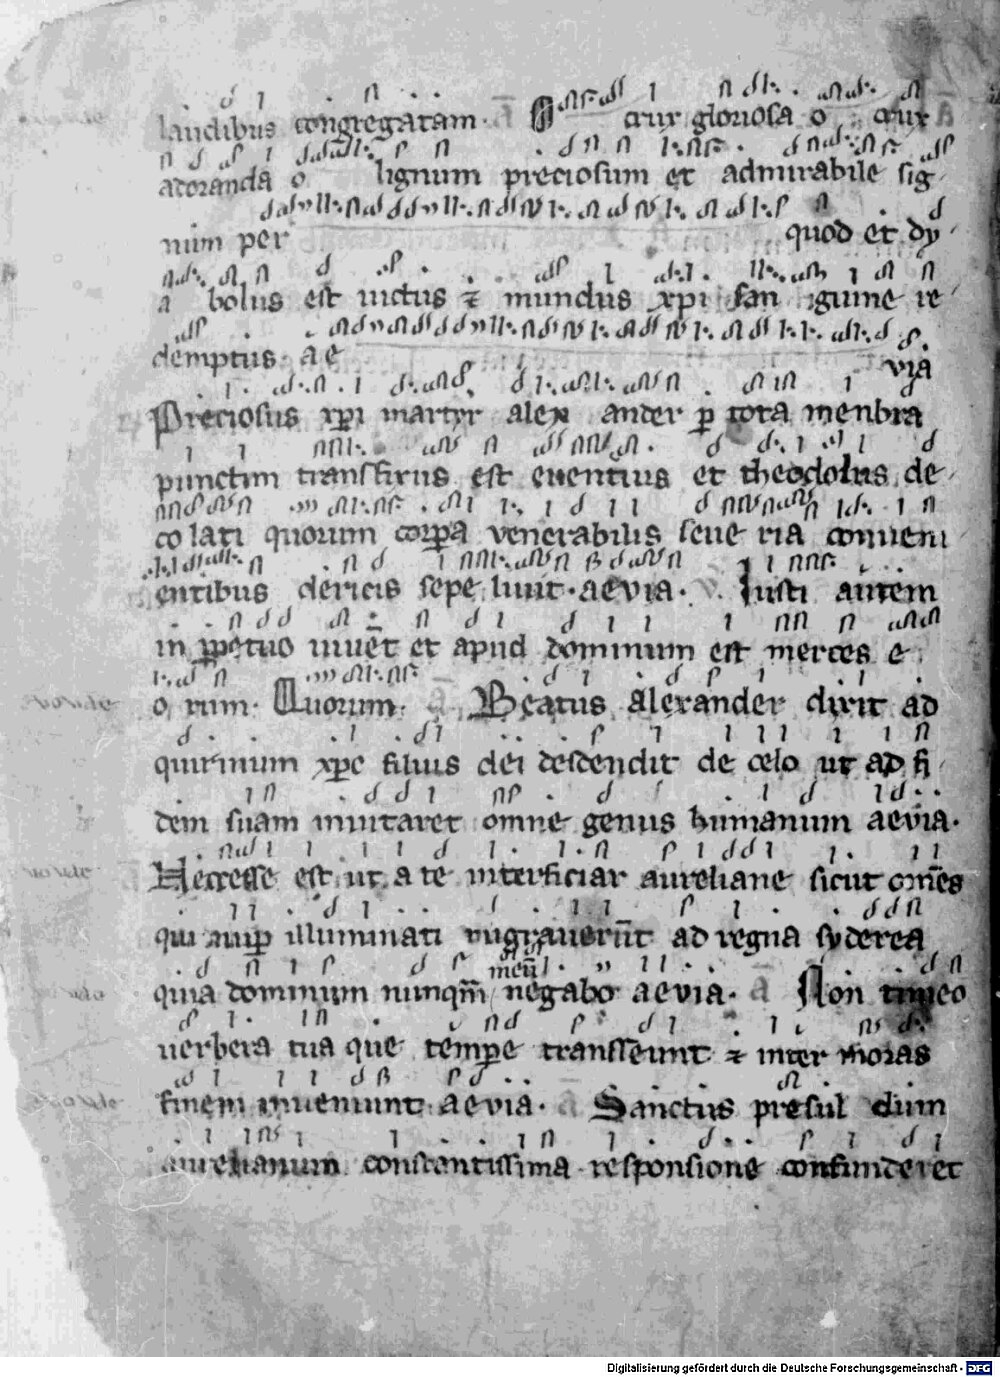 laudibus congregatam. A O crux gloriosa o crux A
adoranda o lignum preciosum et admirabile sig
num per quod et dy
a bolus est uictus ⁊ mundus xpi san guine re
demptus. a e via
Preciosus xpi martyr alex ander p tota menbra
punctim transfixus est euentius et theodolus de
co lati quorum corpa venerabilis seue ria conueni
entibus clericis sepe liuit. aevia. V. Iusti autem
in ppetuo uiuēt et apud dominum est merces e
o rum. Quorum. A Beatus alexander dixit ad
quirinum xpc filius dei descendit de celo ut ad fi
dem suam inuitaret omne genus humanum aevia.
Necesse est ut a te interficiar aureliane sicut om̄es
qui nup illuminati migrauerūt ad regna syderea
meū
quia dominum nunqm̄ negabo aevia. A Non timeo
uerbera tua que tempe transseunt ⁊ inter moras
finem inueniunt aevia. A Sanctus presul dum
aurelianum constantissima responsione confunderet
Digitalisierung gefördert durch die Deutsche Forschungsgemeinschaft - DFG